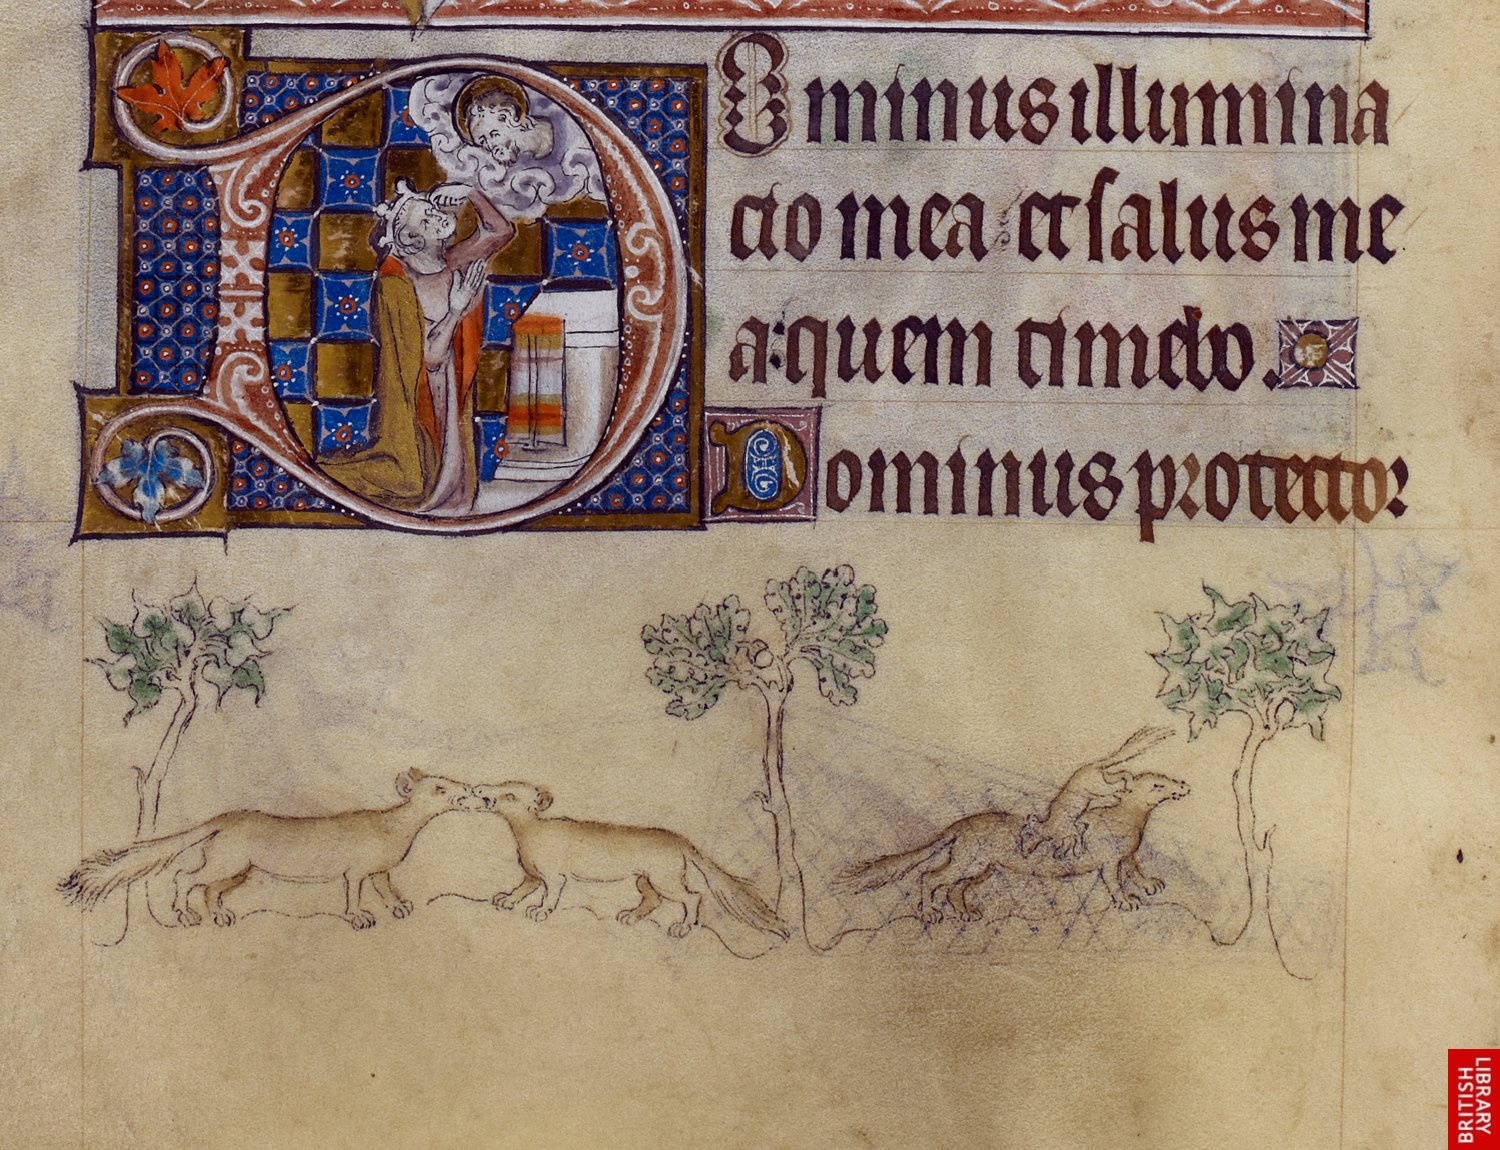 Dominus illumina
cio mea et salus me
a: quem timebo.
Dominus protector
BRITISH
LIBRARY